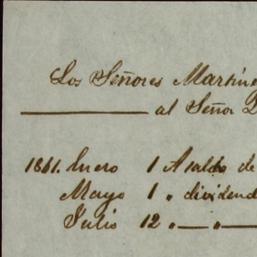 Los Señores Martíne
al Señor D
1861. Enero 1 A saldo de
Mayo 1 " dividend
Julio 12 " — " —